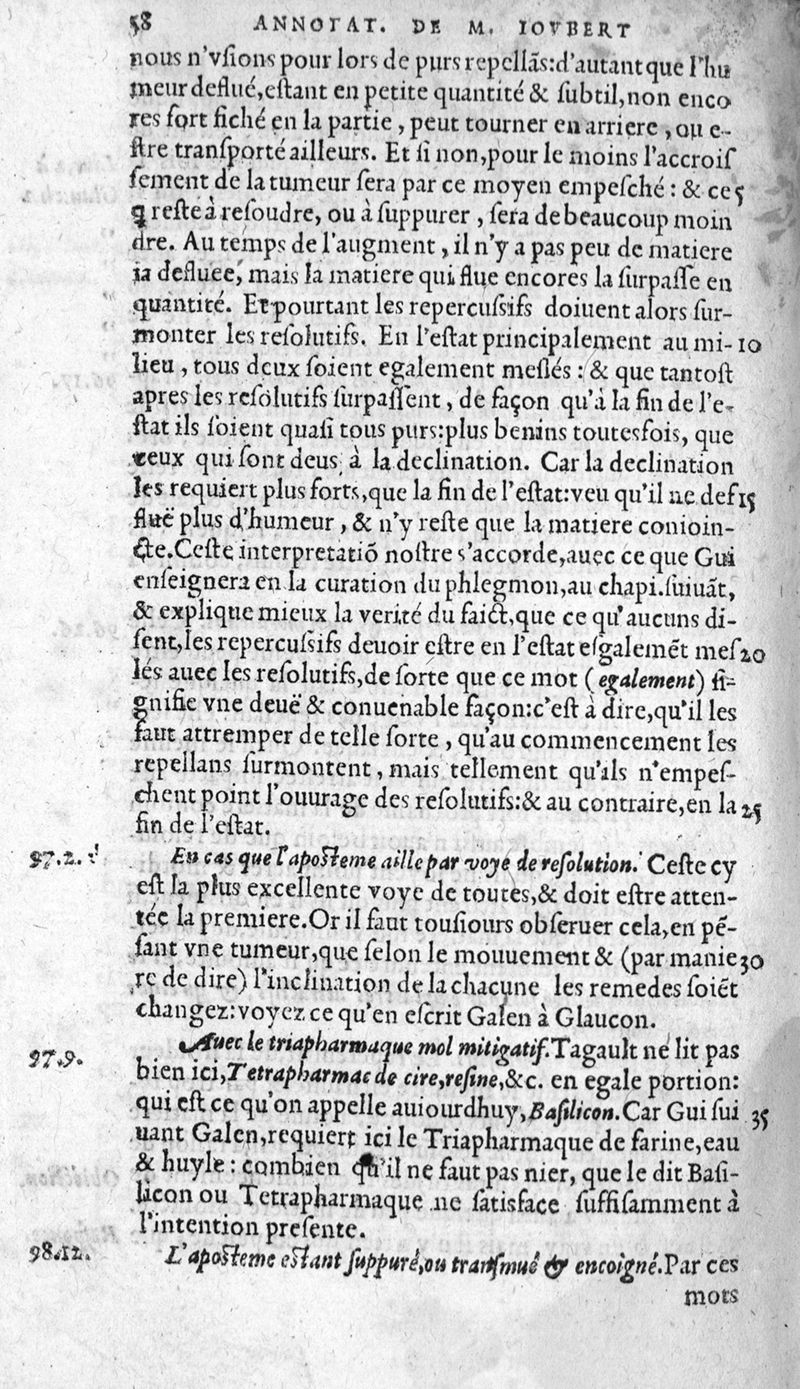 58 ANNOTAT. DE M. IOVBERT
nous n'vſions pour lors de purs repellãs:d'autant que l'hu
meur deflué,eſtant en petite quantité & ſubtil,non enco
res fort fiché en la partie , peut tourner en arriere , ou e-
ſtre tranſporté ailleurs. Et ſi non,pour le moins l'accroiſ
ſement de la tumeur ſera par ce moyen empeſché : & ce 5
q̃ reſte à reſoudre, ou à ſuppurer , ſera de beaucoup moin
dre. Au temps de l'augment , il n'y a pas peu de matiere
ia defluee, mais la matiere qui flue encores la ſurpaſſe en
quantité. Et pourtant les repercuſsifs doiuent alors ſur-
monter les reſolutifs. En l'eſtat principalement au mi- 10
lieu , tous deux ſoient egalement meſlés : & que tantoſt
apres les reſolutifs ſurpaſſent , de façon qu'à la fin de l'e-
ſtat ils ſoient quaſi tous purs:plus benins toutesfois, que
ceux qui ſont deus à la declination. Car la declination
les requiert plus forts,que la fin de l'eſtat:veu qu'il ne def 15
fluë plus d'humeur , & n'y reſte que la matiere conioin-
cte.Ceſte interpretatiõ noſtre s'accorde,auec ce que Gui
enſeignera en la curation du phlegmon,au chapi.ſuiuãt,
& explique mieux la verité du faict,que ce qu'aucuns di-
ſent,les repercuſsifs deuoir eſtre en l'eſtat eſgalemẽt meſ 20
lés auec les reſolutifs,de ſorte que ce mot (egalement) ſi-
gnifie vne deuë & conuenable façon:c'eſt à dire,qu'il les
faut attremper de telle ſorte , qu'au commencement les
repellans ſurmontent , mais tellement qu'ils n'empeſ-
chent point l'ouurage des reſolutifs:& au contraire,en la 25
fin de l'eſtat.
97.2. En cas que l'apoſteme aille par voye de reſolution. Ceſte cy
eſt la plus excellente voye de toutes,& doit eſtre atten-
tée la premiere.Or il faut touſiours obſeruer cela,en pẽ-
ſant vne tumeur,que ſelon le mouuement & (par manie 30
re de dire) l'inclination de la chacune les remedes ſoiẽt
changez:voyez ce qu'en eſcrit Galen à Glaucon.
97.9. Auec le triapharmaque mol mitigatif.Tagault ne lit pas
bien ici,Tetrapharmac de cire,reſine,&c. en egale portion:
qui eſt ce qu'on appelle auiourdhuy,Baſilicon.Car Gui ſui 35
uant Galen,requiert ici le Triapharmaque de farine,eau
& huyle : combien qu'il ne faut pas nier, que le dit Baſi-
licon ou Tetrapharmaque ne ſatisface ſuffiſamment à
l'intention preſente.
98.12. L'apoſteme eſtant ſuppuré,ou tranſmué & encoigné.Par ces
mots